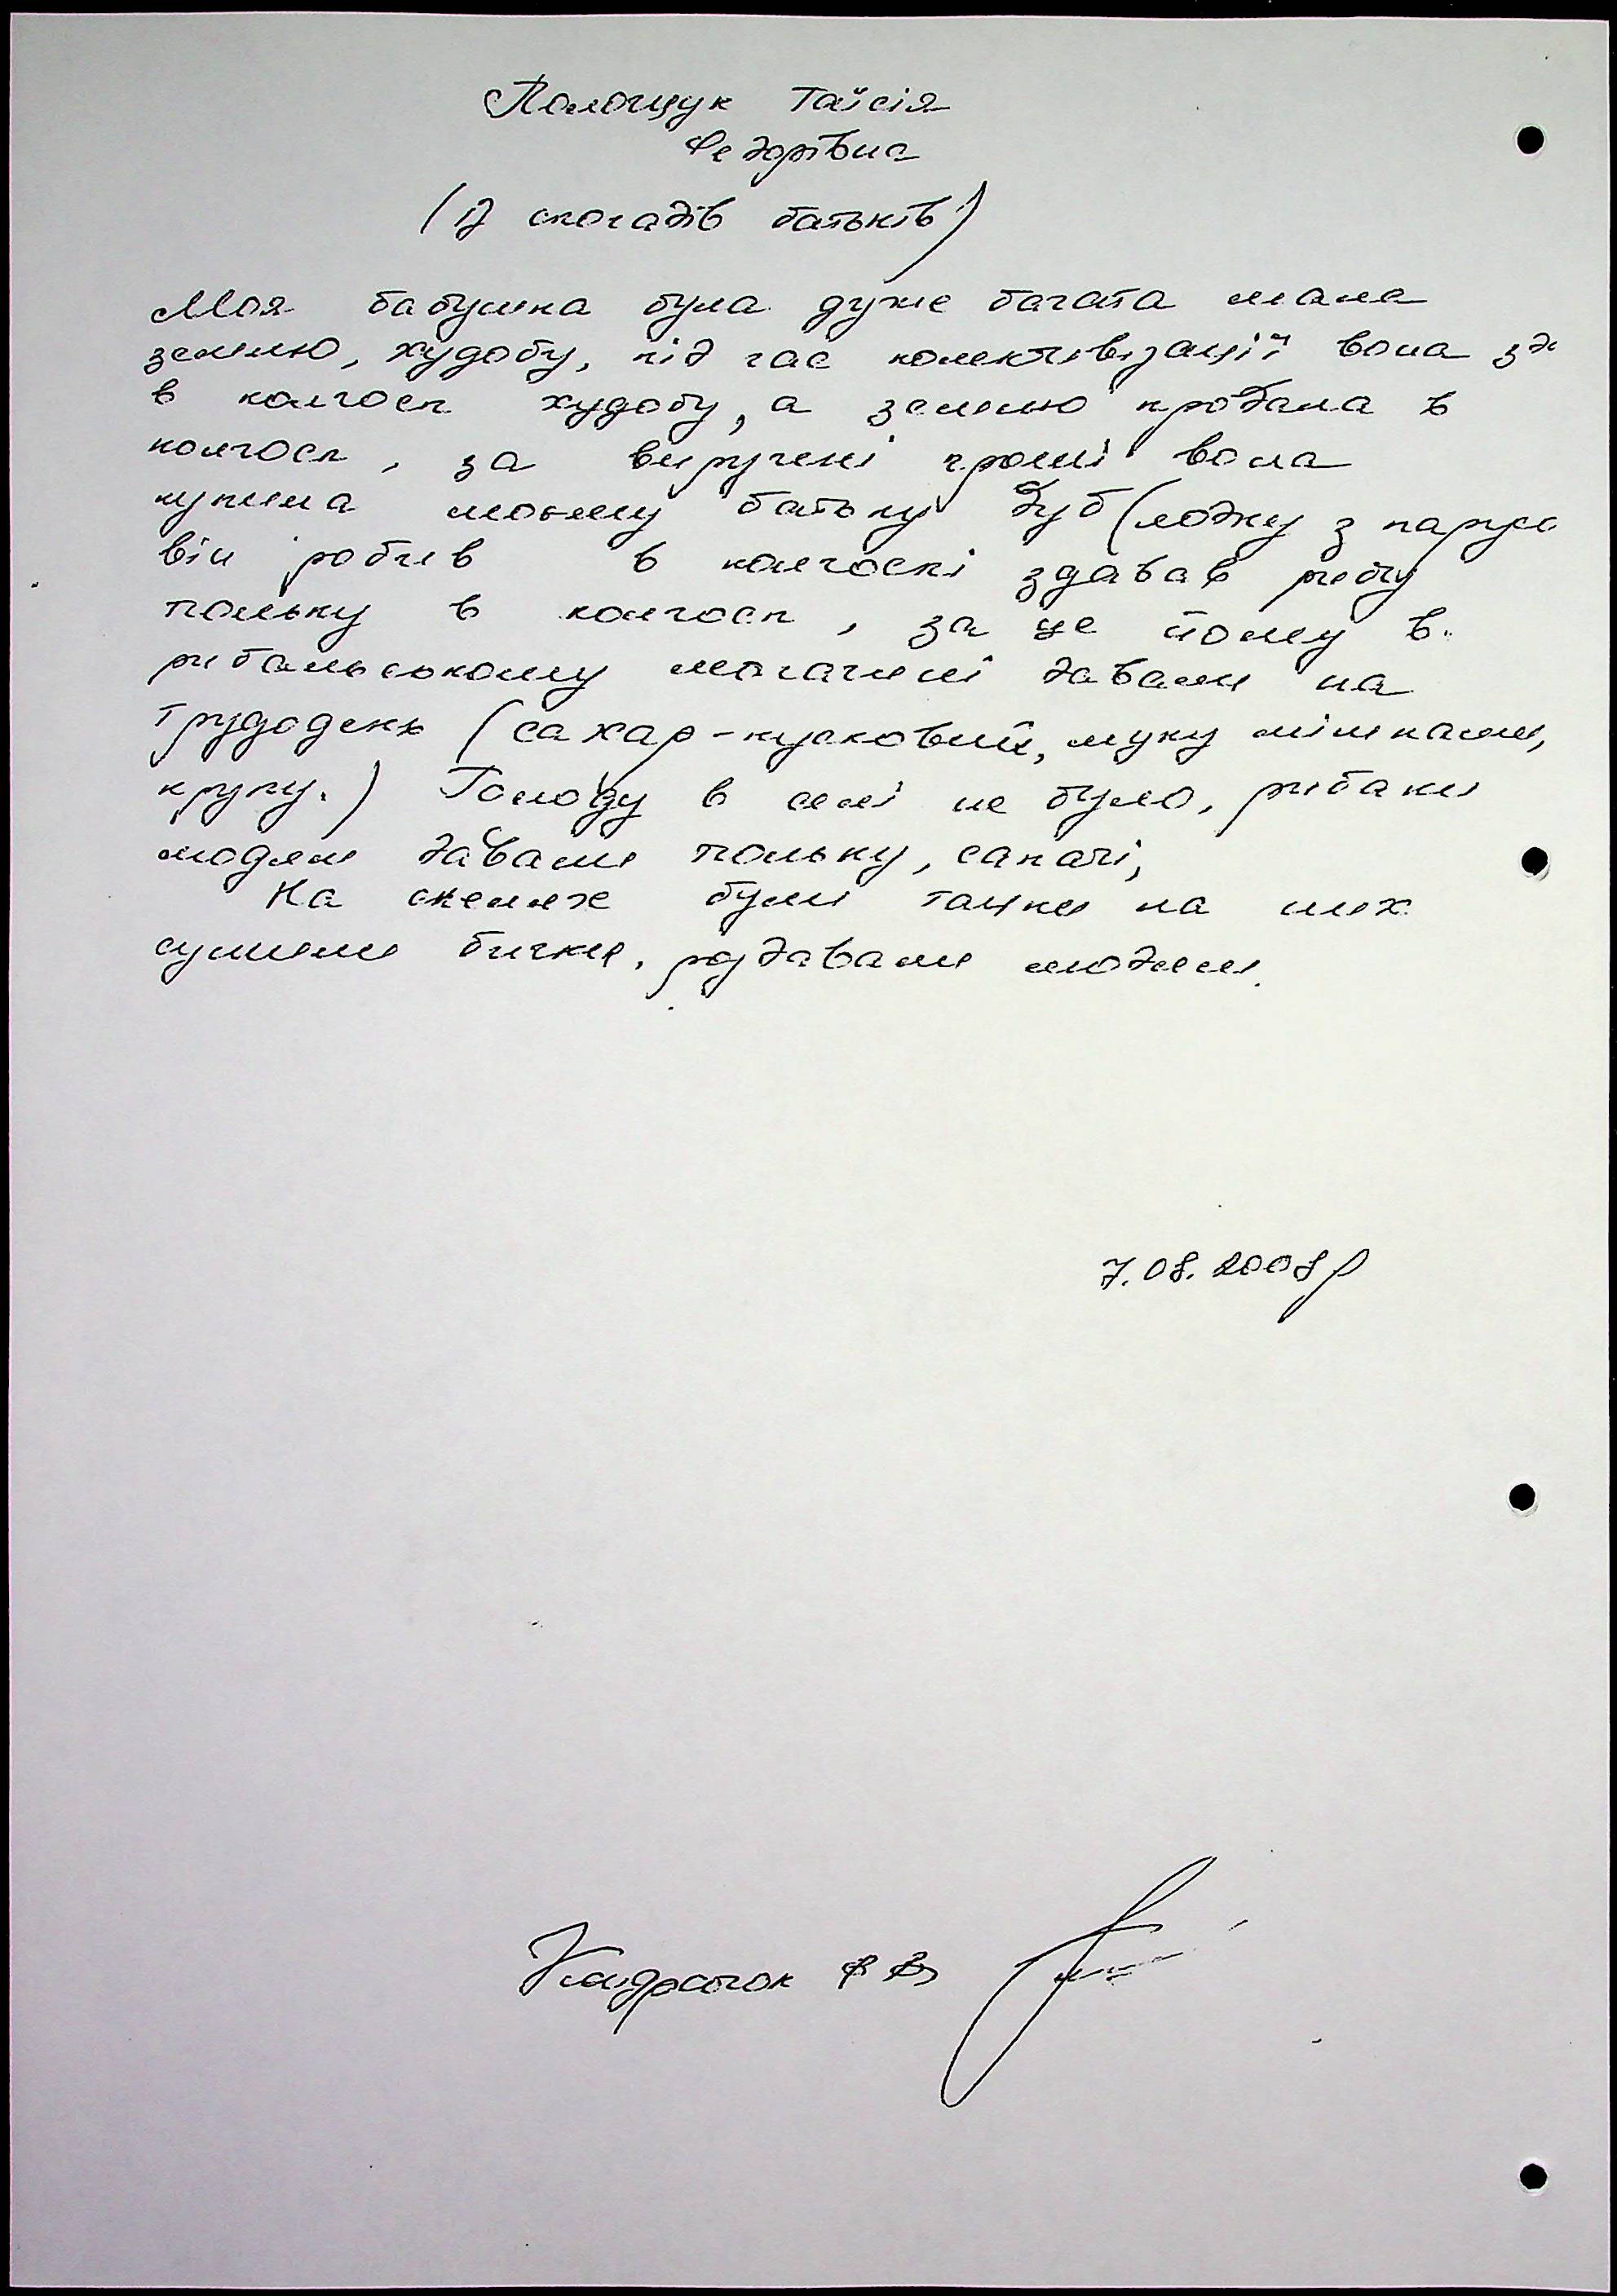 Полощук Таїсія
Федорівна
(із спогадів батьків)
Моя бабушка була дуже багата мала
землю, худобу, під час колективізації вона зд
в колгосп худобу, а землю продала в
колгосп, за виручені гроші вона
купила моєму батьку дуб (лодку з парус
він робив в колгоспі здавав рибу
тюльку в колгосп, за це йому в
рибальському магазині давали на
трудодень (сахар-кусковий, муку мішками,
крупу.) Голоду в селі не було, рибаки
людям давали тюльку, сапачі,
На скелях були танки на них
сушили бички, роздавали людям.
7.08.2008р